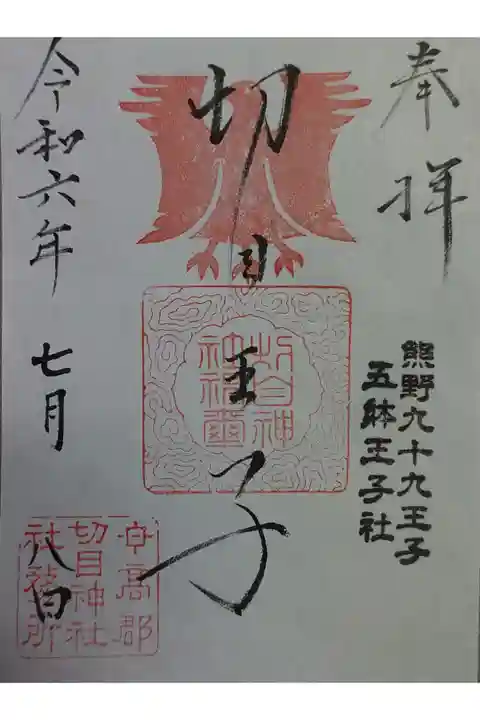 奉拝
熊野九十九王子
五躰王子社
切目王子
切目神社璽
令和六年
七月
八日
日高郡
切目神社
社務所